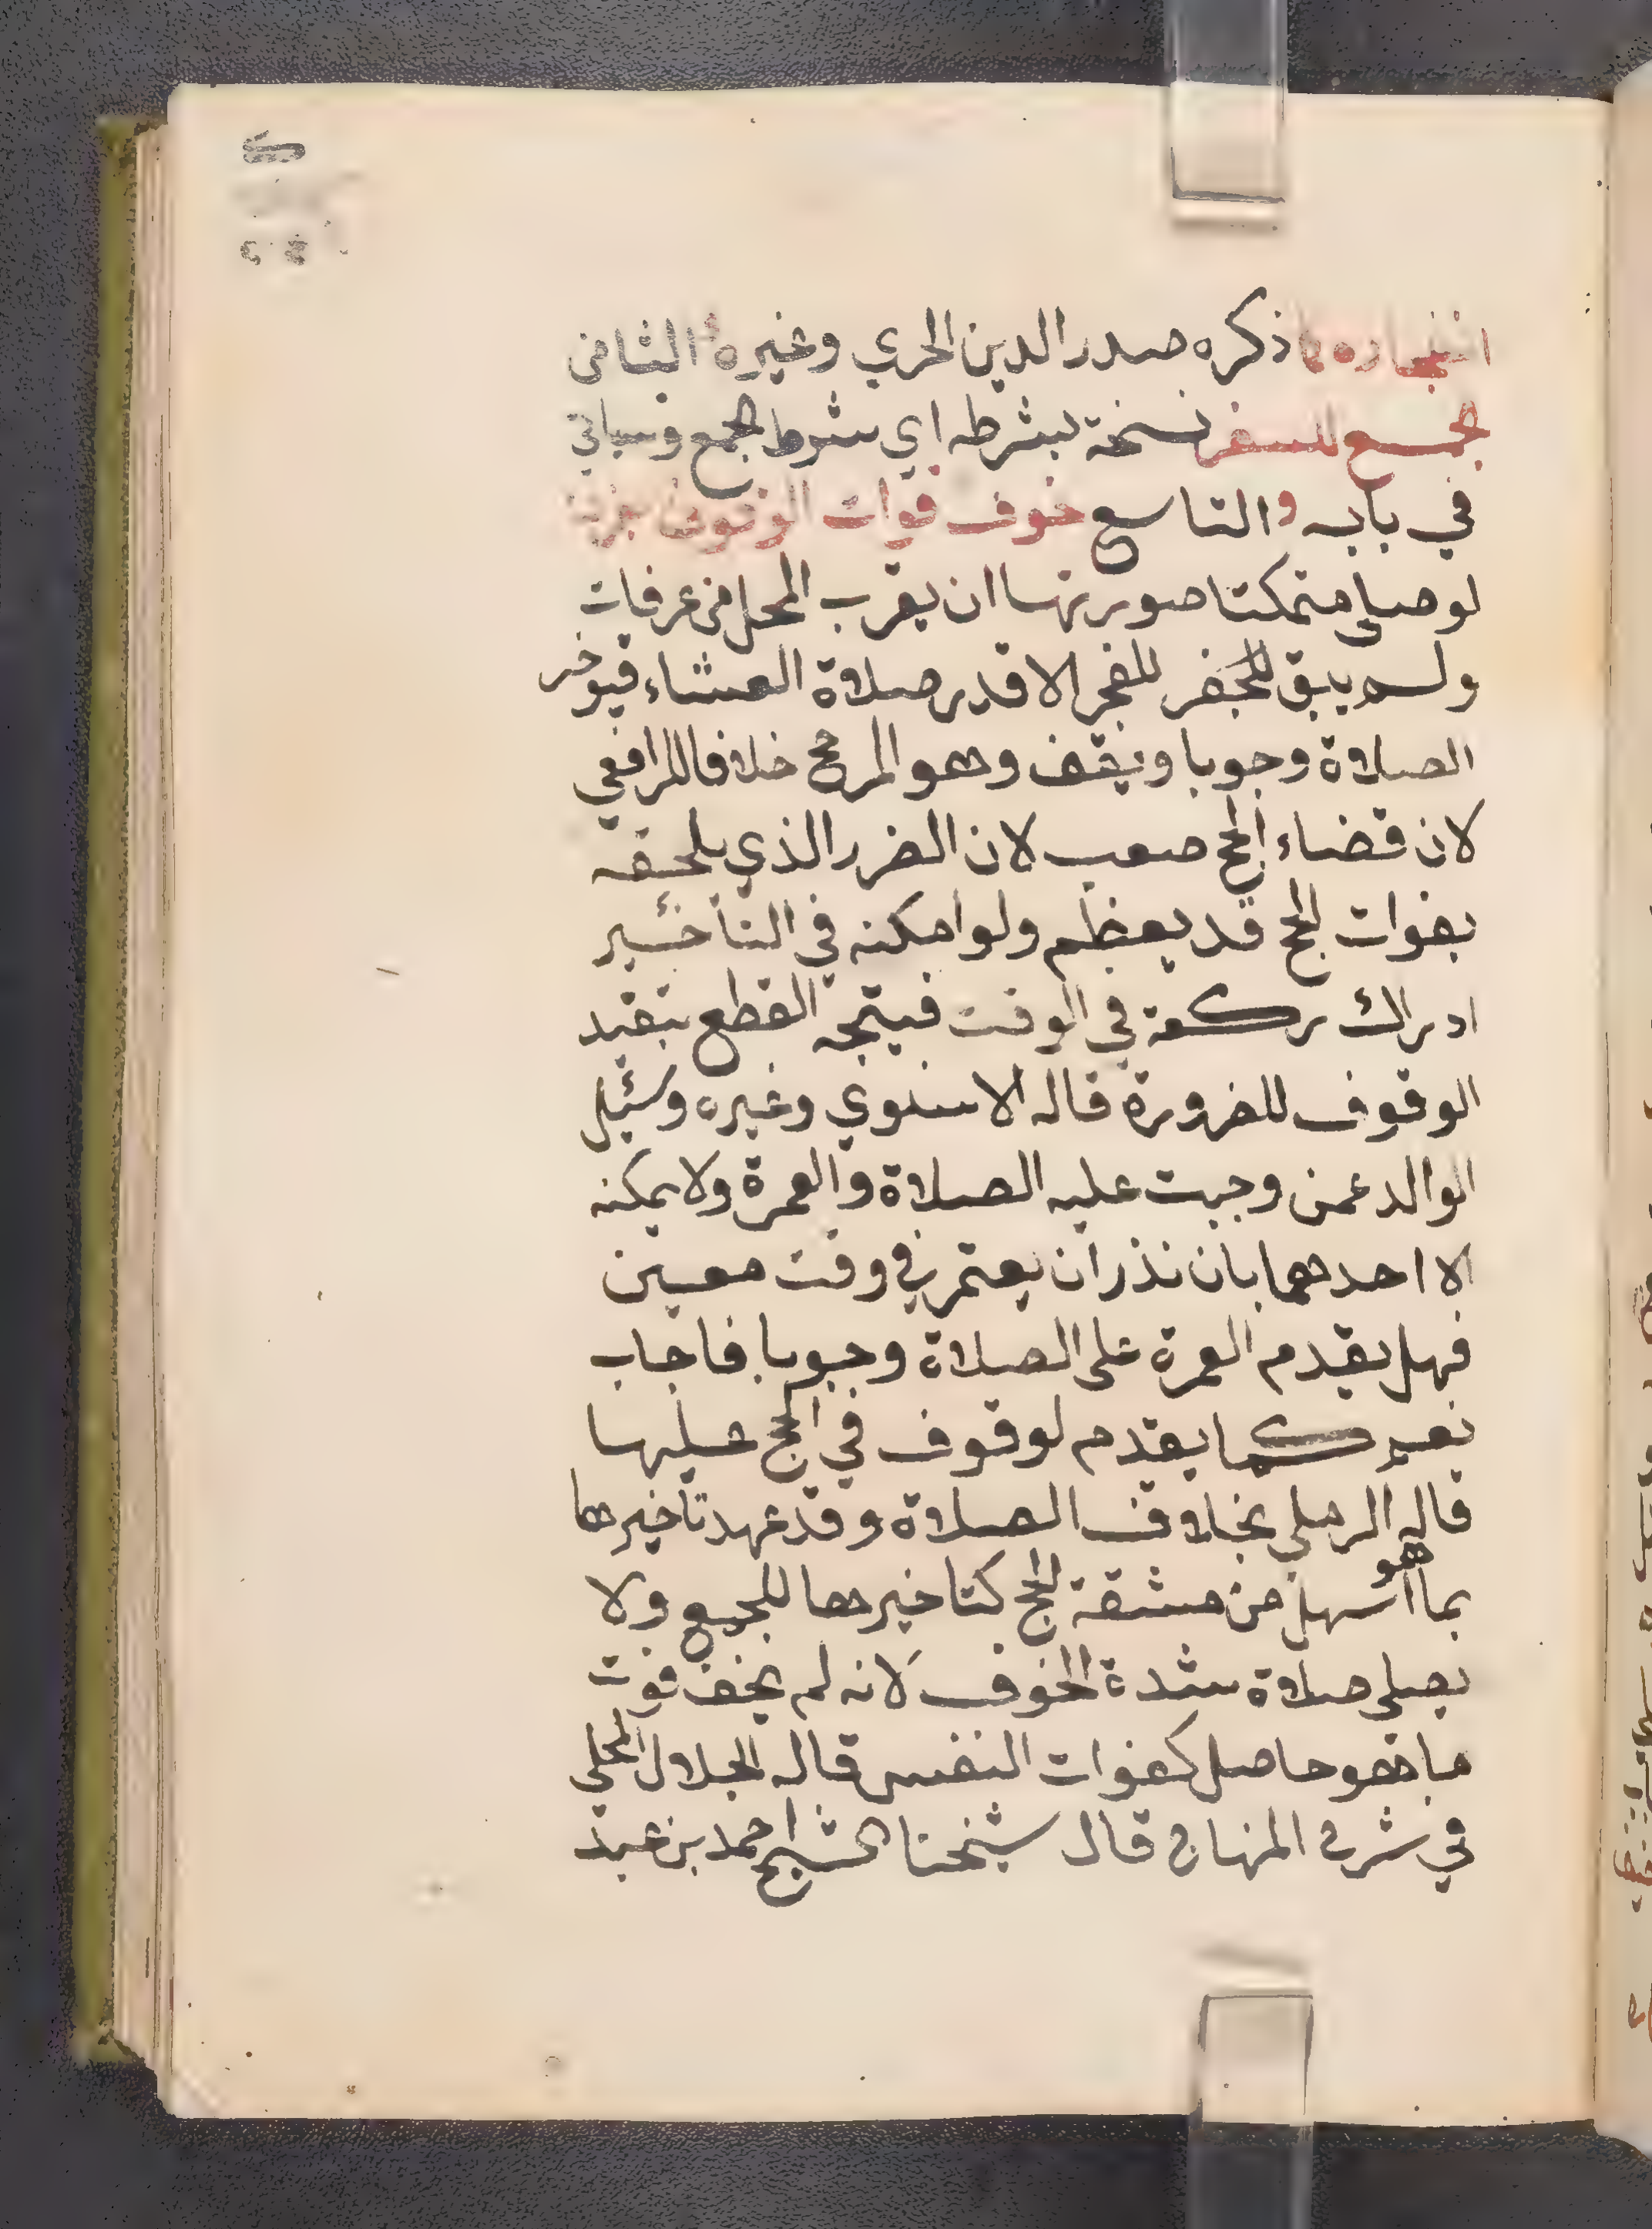 انفجاره بما ذكره صدر الدين الحري وغيره الثامن
الجمع للسفر نسخة بشرطه اي شروط الجمع وسياتي
في بابه والتاسع خوف فوات الوقوف بعرفة
لو صلى متمكنا صورتها ان يقرب المحل من عرفات
ولم يبق للفجر الا قدر صلاة العشاء فيوخر
الصلاة وجوبا ويقف وهو المرجح خلافا للرافعي
لان قضاء الحج صعب لان الضرر الذي يلحقه
بفوات الحج قد يعظم ولو امكنه في التأخير
ادراك ركعة في الوقت فيتجه القطع بتقيد
الوقوف للضرورة قاله الاسنوي وغيره وسئيل
الوالد عمن وجبت عليه الصلاة والعمرة ولا يمكنه
الا احدهما بان نذر ان يعتمر في وقت معين
فهل يقدم العمرة على الصلاة وجوبا فاجاب
نعم كما يقدم لوقوف في الحج عليها
قاله الرملي بخلاف الصلاة وقد عهد تاخيرها
بما هو اسهل من مشقة الحج كتاخيرها للجمع ولا
يصلي صلاة شدة الخوف لانه لم يخف فوت
ما هو حاصل كفوات النفس قاله الجلال المحلي
في شرح المنهاج قال شيخنا الشيخ احمد بن عبد